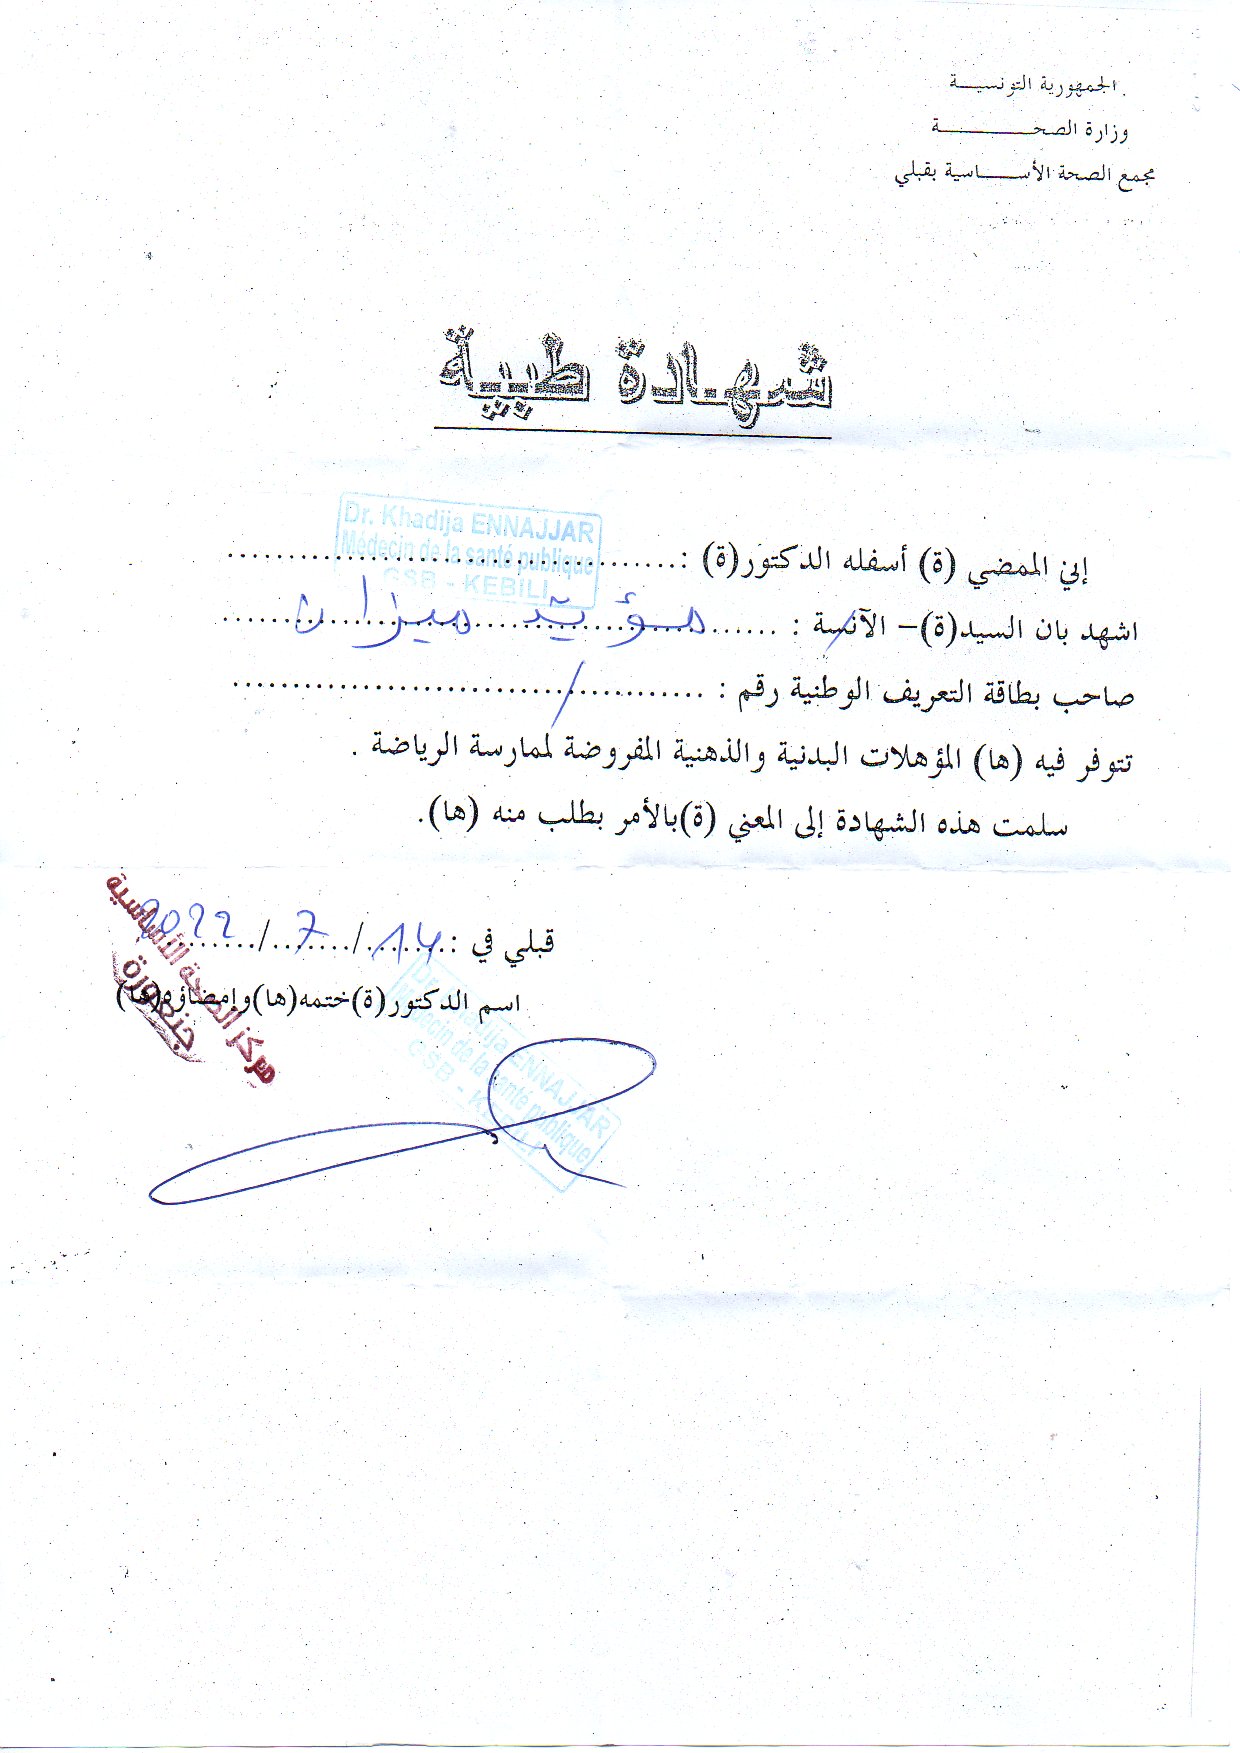 الجمهورية التونسيـــة
وزارة الصحــــــــــة
مجمع الصحة الأســـاسية بقبلي
شهادة طبية
Dr. Khadija ENNAJJAR
Médecin de la santé publique
CSB - KEBILI
إني الممضي (ة) أسفله الدكتور(ة) :
اشهد بان السيد(ة)– الآنسة : مؤيد ميزان
صاحب بطاقة التعريف الوطنية رقم : /
تتوفر فيه (ها) المؤهلات البدنية والذهنية المفروضة لممارسة الرياضة .
سلمت هذه الشهادة إلى المعني (ة)بالأمر بطلب منه (ها).
قبلي في : 14/7/2022
اسم الدكتور(ة)ختمه(ها)وإمضاؤه(ها)
مركز الصحة الأساسية
جنعورة
Dr. Khadija ENNAJJAR
Médecin de la santé publique
CSB - KEBILI